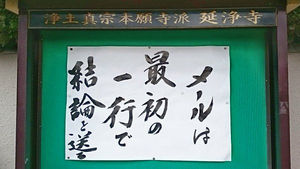 浄土真宗本願寺派 延浄寺
メールは
最初の
一行で
結論を送る